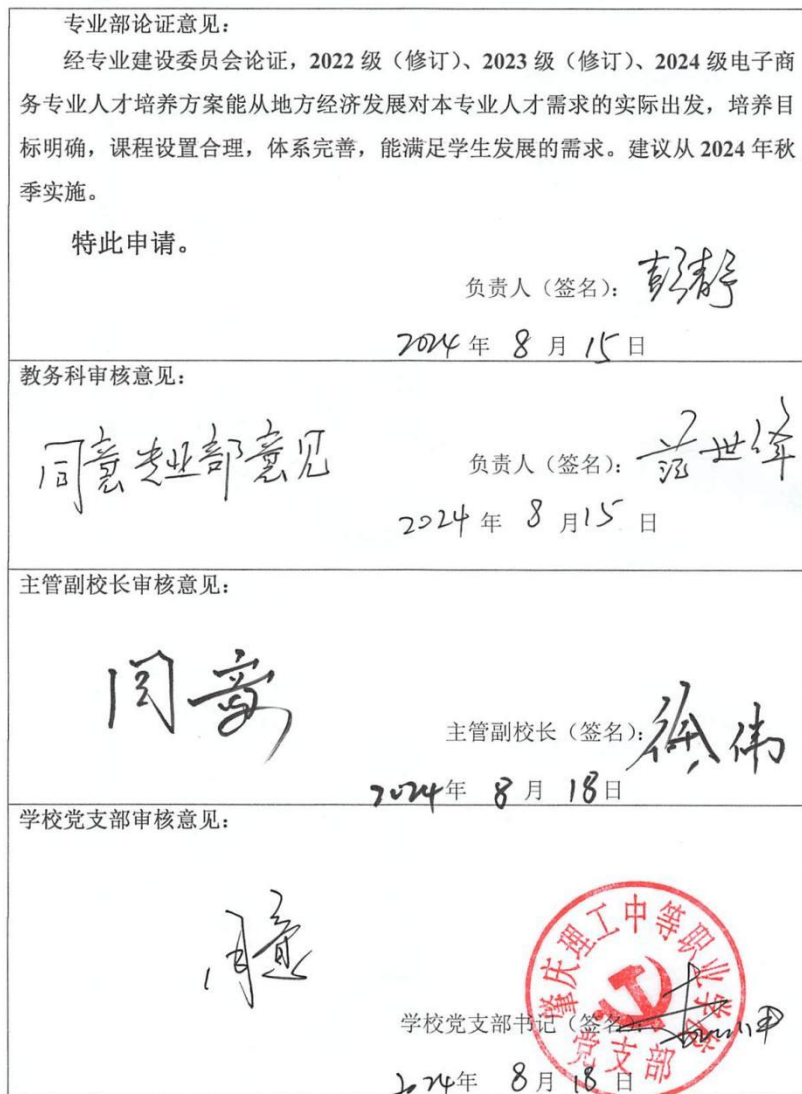 专业部论证意见：
经专业建设委员会论证，2022 级（修订）、2023 级（修订）、2024 级电子商
务专业人才培养方案能从地方经济发展对本专业人才需求的实际出发，培养目
标明确，课程设置合理，体系完善，能满足学生发展的需求。建议从 2024 年秋
季实施。
特此申请。
负责人（签名）：彭静
2024 年 8 月 15 日
教务科审核意见：
同意专业部意见
负责人（签名）：范世锋
2024 年 8 月 15 日
主管副校长审核意见：
同意
主管副校长（签名）：徐伟
2024年 8 月 18日
学校党支部审核意见：
同意
肇庆理工中等职业学校
党支部
学校党支部书记（签名）：
2024年 8 月 18 日